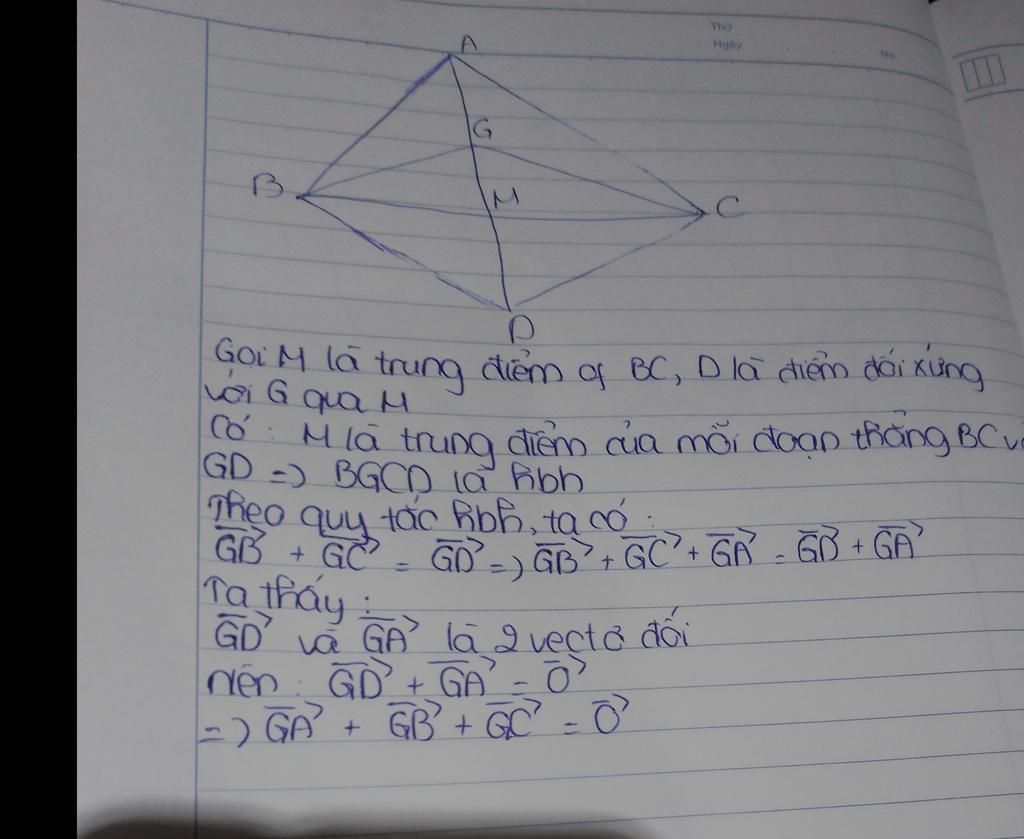 Thứ
Ngày
No.
A
G
B
M
C
D
Gọi M là trung điểm of BC, D là điểm đối xứng
với G qua M
Có: M là trung điểm của mỗi đoạn thẳng BC và
GD => BGCD là hbh
Theo quy tắc hbh, ta có:
GB→ + GC→ = GD→ => GB→ + GC→ + GA→ = GD→ + GA→
Ta thấy:
GD→ và GA→ là 2 vectơ đối
Nên: GD→ + GA→ = O→
=> GA→ + GB→ + GC→ = O→